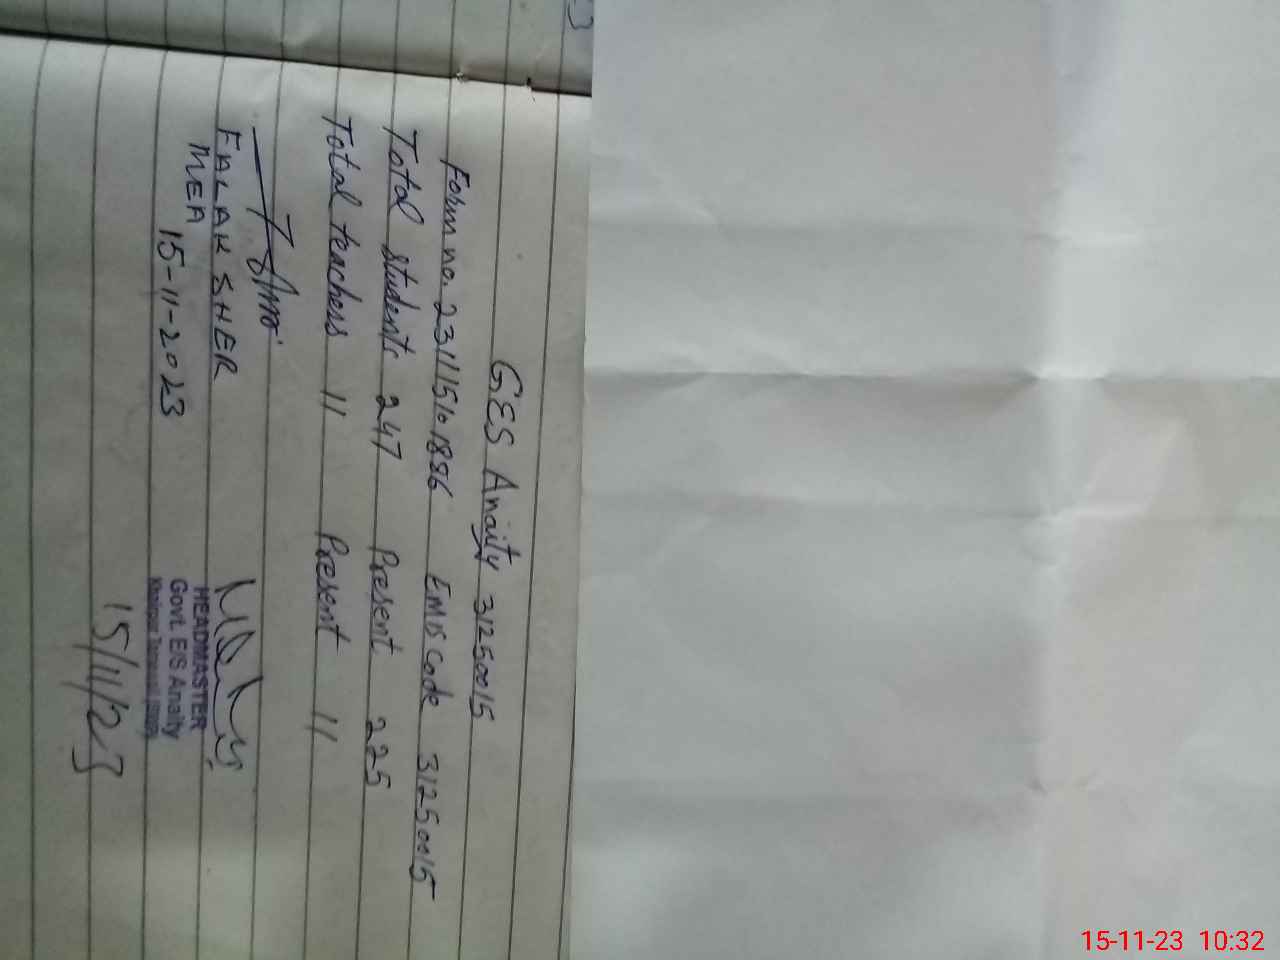 GES Anaity 31250015
Form no. 231115101886 EMIS Code 31250015
Total students 247 Present 225
Total teachers 11 Present 11
FALAK SHER
MEA
15-11-2023
HEADMASTER
Govt. E/S Anaity
15/11/23
15-11-23 10:32